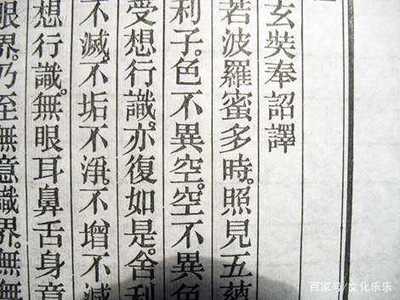 玄奘奉詔譯
若波羅蜜多時。照見五蘊
利子。色不異空。空不異色
受想行識。亦復如是。舍利
不滅。不垢不淨。不增不減
想行識。無眼耳鼻舌身意
眼界。乃至無意識界。無無
百家号/文化乐乐